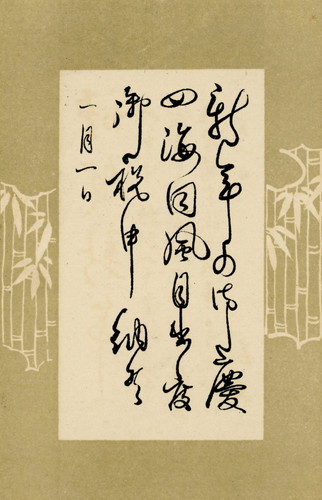 新年の御慶
四海同風目出度
御祝申納候
一月一日